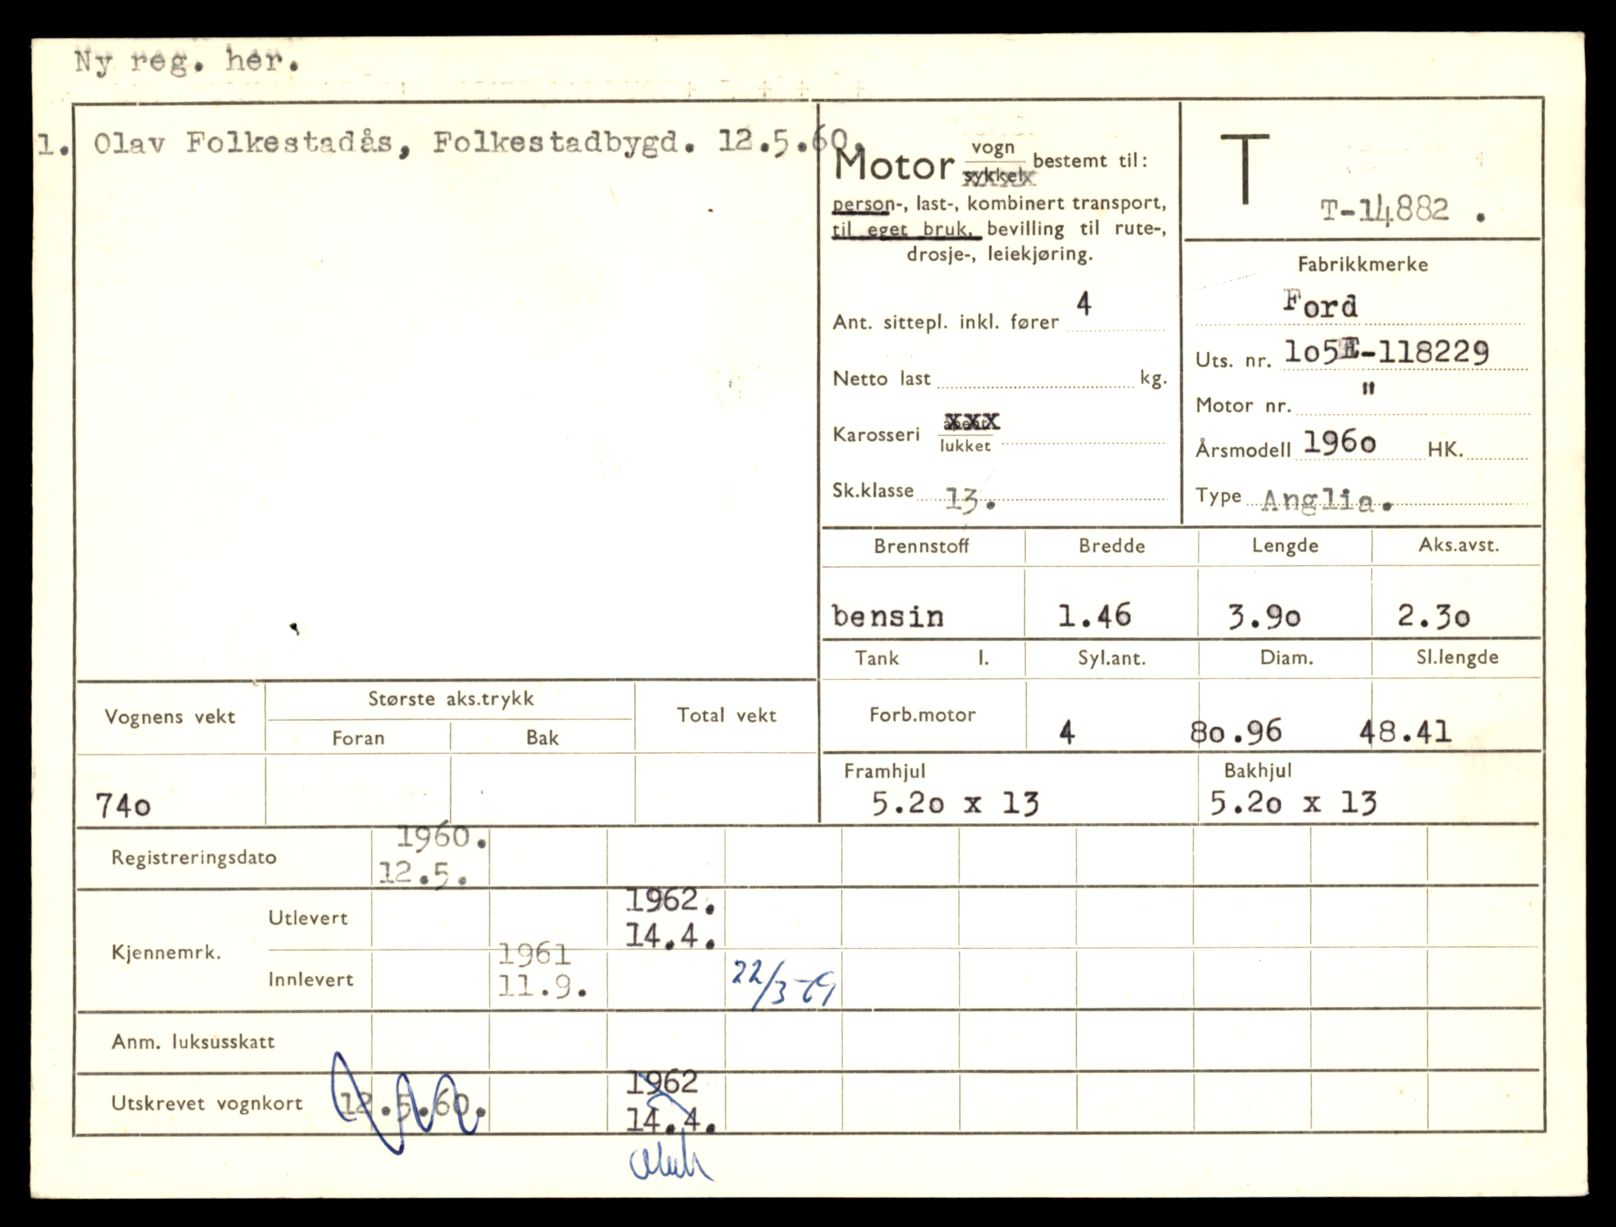 Ny reg. her.
1. Olav Folkestadås, Folkestadbygd. 12.5.60.
Motor vogn bestemt til:
sykkel
person-, last-, kombinert transport,
til eget bruk, bevilling til rute-,
drosje-, leiekjøring.
Ant. sittepl. inkl. fører 4
Netto last kg.
Karosseri åpent
lukket
Sk.klasse 13.
T
T-14882 .
Fabrikkmerke
Ford
Uts. nr. 1o5E-118229
Motor nr. "
Årsmodell 196o HK.
Type Anglia.
Brennstoff Bredde Lengde Aks.avst.
bensin 1.46 3.9o 2.3o
Tank l. Syl.ant. Diam. Sl.lengde
Forb.motor 4 8o.96 48.41
Framhjul Bakhjul
5.2o x 13 5.2o x 13
Vognens vekt Største aks.trykk Total vekt
Foran Bak
74o
Registreringsdato 1960.
12.5.
Kjennemrk. Utlevert 1962.
14.4.
Innlevert 1961
11.9. 22/3-69
Anm. luksusskatt
Utskrevet vognkort 12.5.60. 1962
14.4.